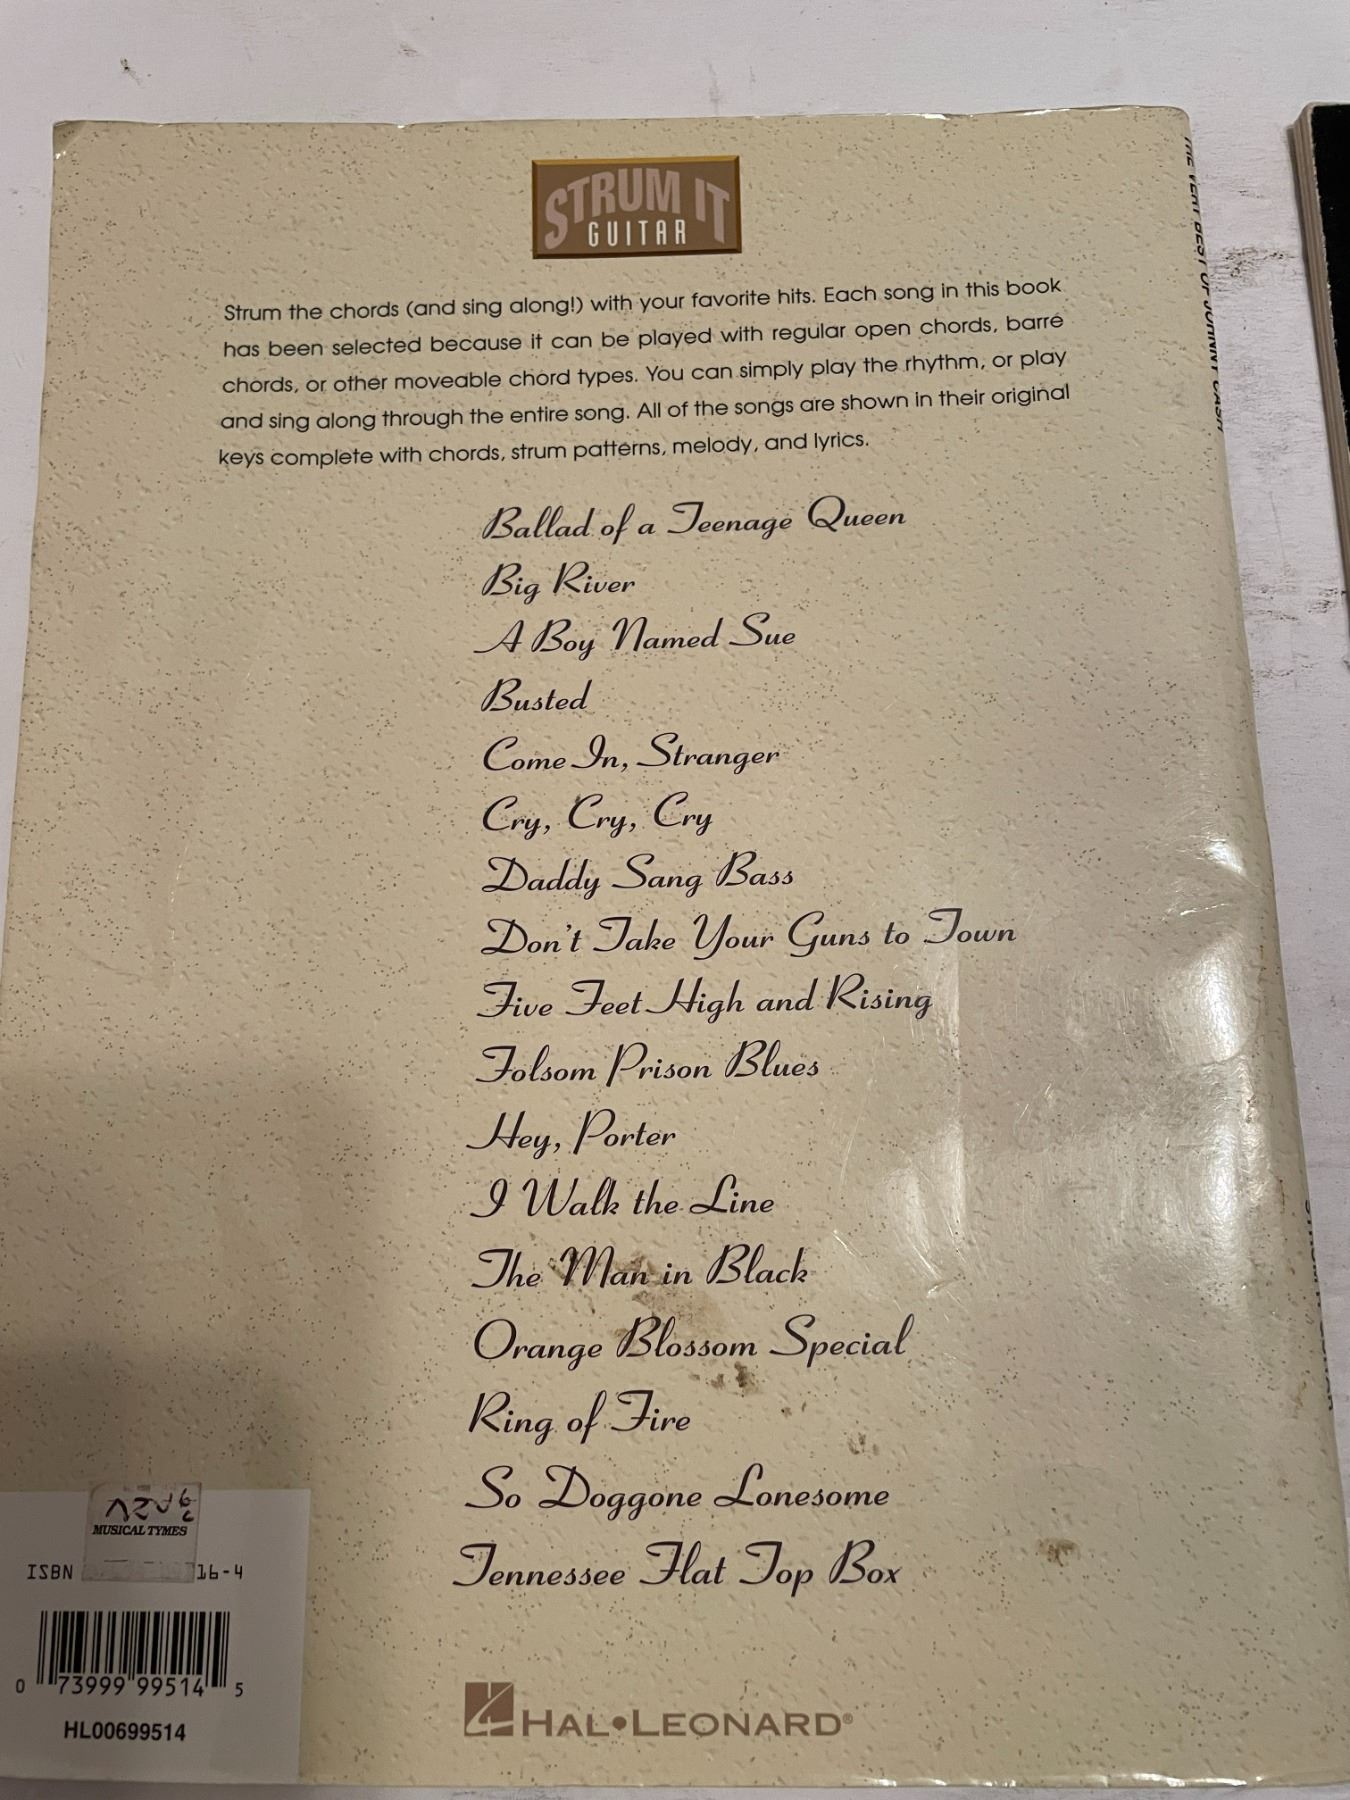 STRUM IT
GUITAR
Strum the chords (and sing along!) with your favorite hits. Each song in this book
has been selected because it can be played with regular open chords, barré
chords, or other moveable chord types. You can simply play the rhythm, or play
and sing along through the entire song. All of the songs are shown in their original
keys complete with chords, strum patterns, melody, and lyrics.
Ballad of a Teenage Queen
Big River
A Boy Named Sue
Busted
Come In, Stranger
Cry, Cry, Cry
Daddy Sang Bass
Don't Take Your Guns to Town
Five Feet High and Rising
Folsom Prison Blues
Hey, Porter
I Walk the Line
The Man in Black
Orange Blossom Special
Ring of Fire
So Doggone Lonesome
Tennessee Flat Top Box
MUSICAL TYMES
ISBN 16-4
0 73999 99514 5
HL00699514
HAL•LEONARD®
THE VERY BEST OF JOHNNY CASH